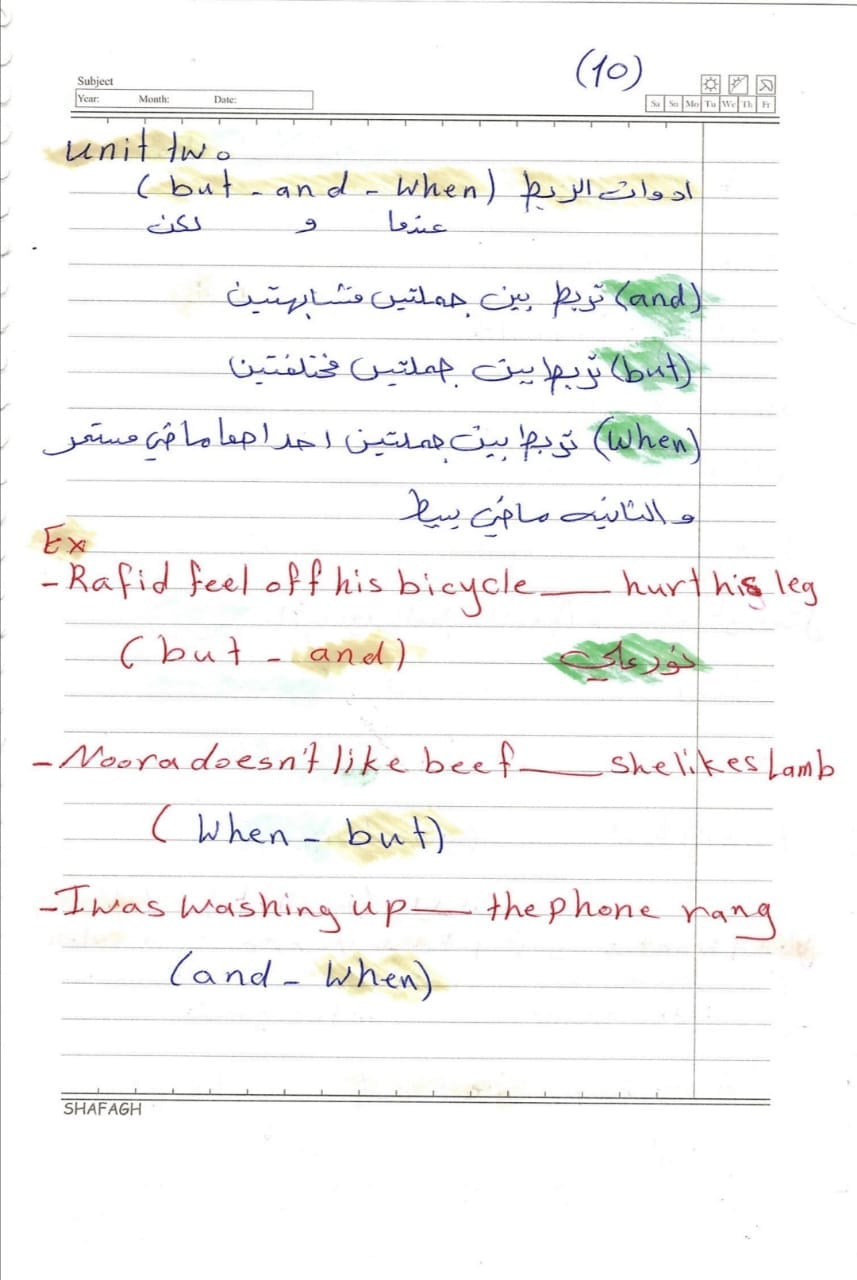 (10)
Subject
Year: Month: Date:
Sa Su Mo Tu We Th Fr
unit two
ادوات الربط (but - and - when)
عندما و لكن
(and) تربط بين جملتين متشابهتين
(but) تربط بين جملتين مختلفتين
(when) تربط بين جملتين احداهما ماضي مستمر
والثانيه ماضي بسيط
Ex
- Rafid feel off his bicycle ____ hurt his leg
(but - and) نور علي
- Noora doesn't like beef ____ she likes Lamb
(When - but)
- I was washing up ____ the phone rang
(and - When)
SHAFAGH